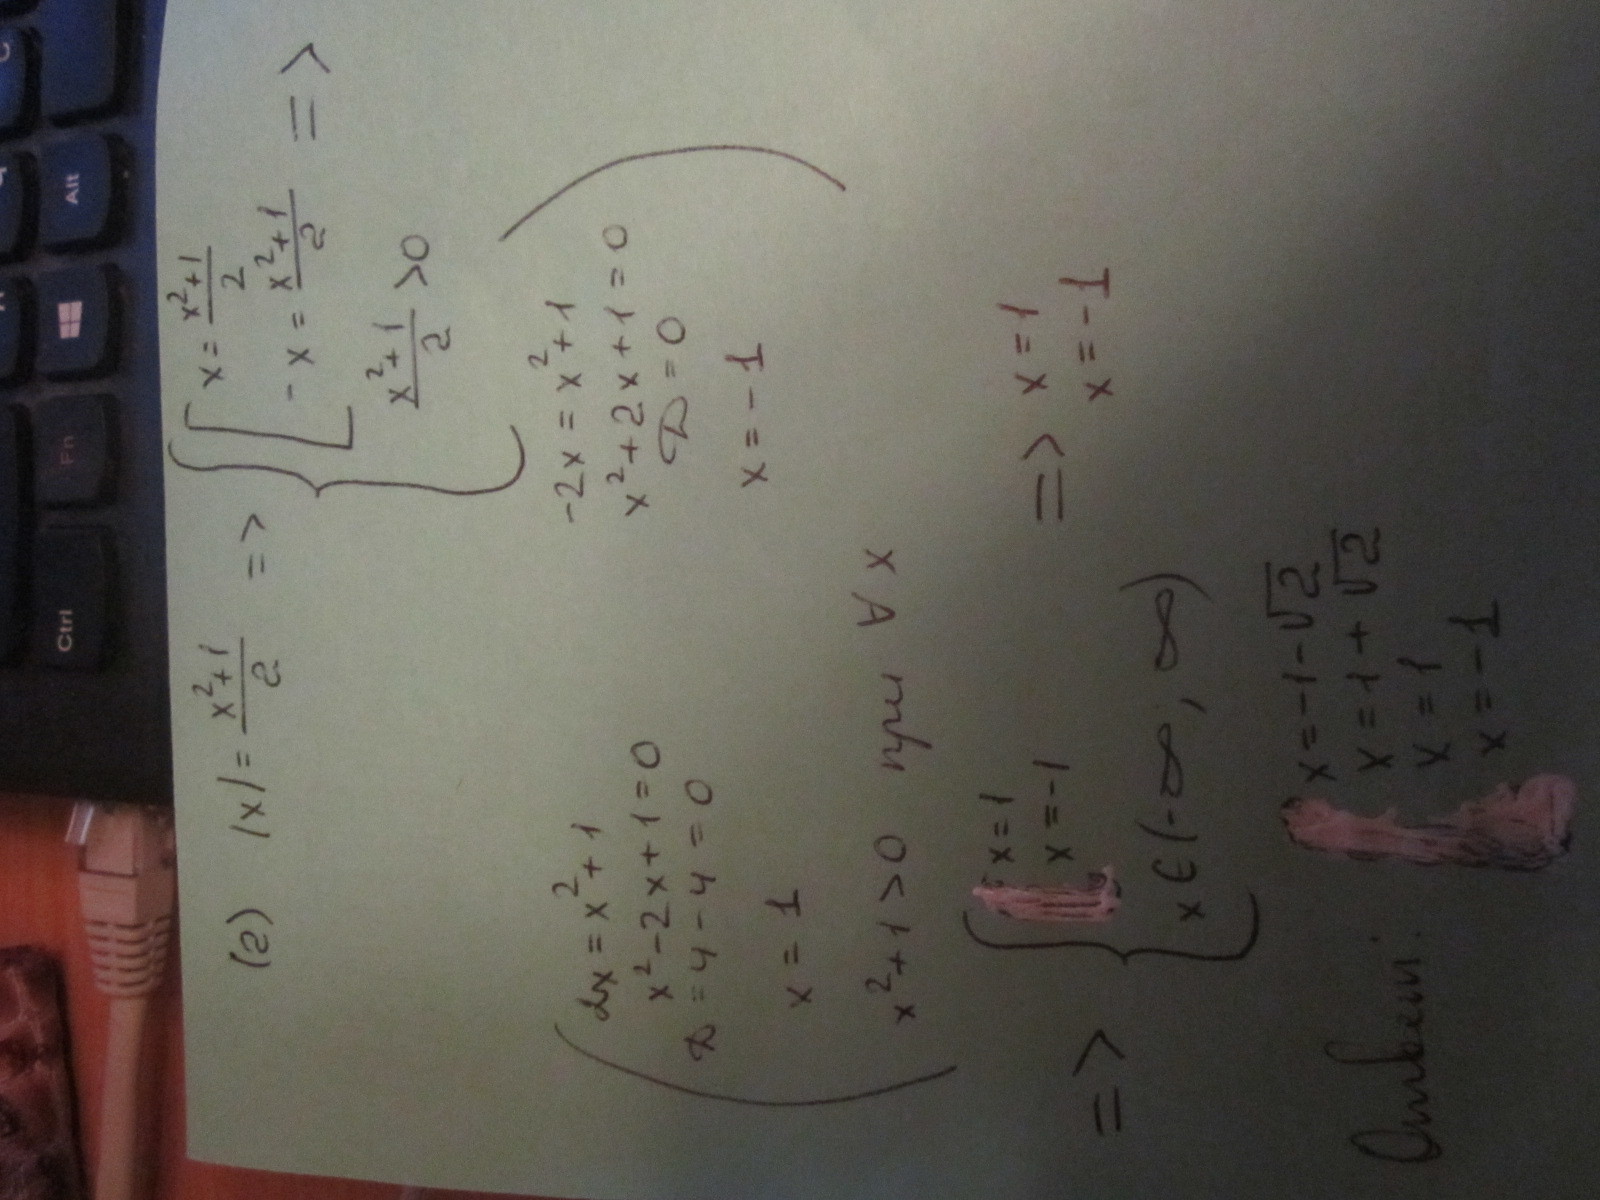 (2) |x| = \frac{x^2+1}{2} => { [ x = \frac{x^2+1}{2}
-x = \frac{x^2+1}{2} =>
\frac{x^2+1}{2} > 0
2x = x^2 + 1
x^2 - 2x + 1 = 0
D = 4 - 4 = 0
x = 1
-2x = x^2 + 1
x^2 + 2x + 1 = 0
D = 0
x = -1
x^2 + 1 > 0 при ∀ x
=> { x = 1
x = -1
x ∈ (-∞, ∞)
=> x = 1
x = -1
Ответ: x = -1 - √2
x = 1 + √2
x = 1
x = -1
Ctrl
Fn
Alt
C